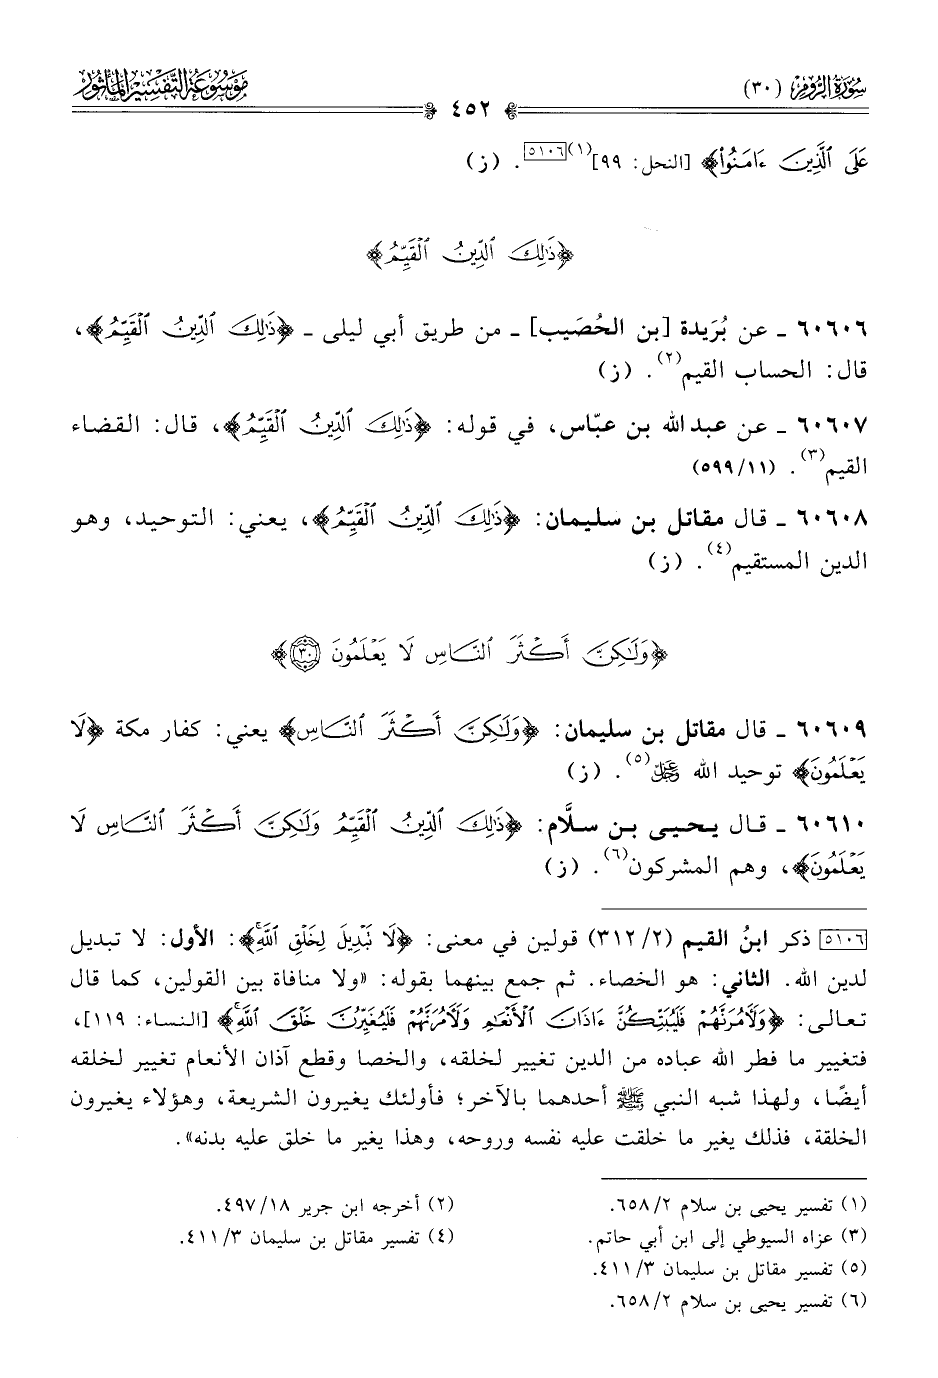 سُورَةُ الرُّومِ (٣٠)
٤٥٢
مَوْسُوعَةُ التَّفْسِيْرِ المَأْثُورِ
عَلَى ٱلَّذِينَ ءَامَنُوا۟﴾ [النحل: ٩٩](١)٥١٠٦. (ز)
﴿ذَٰلِكَ ٱلدِّينُ ٱلْقَيِّمُ﴾
٦٠٦٠٦ ـ عن بُرَيدة [بن الحُصَيب] ـ من طريق أبي ليلى ـ ﴿ذَٰلِكَ ٱلدِّينُ ٱلْقَيِّمُ﴾،
قال: الحساب القيم(٢). (ز)
٦٠٦٠٧ ـ عن عبد الله بن عبّاس، في قوله: ﴿ذَٰلِكَ ٱلدِّينُ ٱلْقَيِّمُ﴾، قال: القضاء
القيم(٣). (١١/٥٩٩)
٦٠٦٠٨ ـ قال مقاتل بن سليمان: ﴿ذَٰلِكَ ٱلدِّينُ ٱلْقَيِّمُ﴾، يعني: التوحيد، وهو
الدين المستقيم(٤). (ز)
﴿وَلَٰكِنَّ أَكْثَرَ ٱلنَّاسِ لَا يَعْلَمُونَ ٣٠﴾
٦٠٦٠٩ ـ قال مقاتل بن سليمان: ﴿وَلَٰكِنَّ أَكْثَرَ ٱلنَّاسِ﴾ يعني: كفار مكة ﴿لَا
يَعْلَمُونَ﴾ توحيد الله ﷿(٥). (ز)
٦٠٦١٠ ـ قال يحيى بن سلَّام: ﴿ذَٰلِكَ ٱلدِّينُ ٱلْقَيِّمُ وَلَٰكِنَّ أَكْثَرَ ٱلنَّاسِ لَا
يَعْلَمُونَ﴾، وهم المشركون(٦). (ز)
٥١٠٦ ذكر ابنُ القيم (٢/٣١٢) قولين في معنى: ﴿لَا تَبْدِيلَ لِخَلْقِ ٱللَّهِۚ﴾: الأول: لا تبديل
لدين الله. الثاني: هو الخصاء. ثم جمع بينهما بقوله: «ولا منافاة بين القولين، كما قال
تعالى: ﴿وَلَءَامُرَنَّهُمْ فَلَيُبَتِّكُنَّ ءَاذَانَ ٱلْأَنْعَٰمِ وَلَءَامُرَنَّهُمْ فَلَيُغَيِّرُنَّ خَلْقَ ٱللَّهِۚ﴾ [النساء: ١١٩]،
فتغيير ما فطر الله عباده من الدين تغيير لخلقه، والخصا وقطع آذان الأنعام تغيير لخلقه
أيضًا، ولهذا شبه النبي ﷺ أحدهما بالآخر؛ فأولئك يغيرون الشريعة، وهؤلاء يغيرون
الخلقة، فذلك يغير ما خلقت عليه نفسه وروحه، وهذا يغير ما خلق عليه بدنه».
(١) تفسير يحيى بن سلام ٢/٦٥٨.
(٢) أخرجه ابن جرير ١٨/٤٩٧.
(٣) عزاه السيوطي إلى ابن أبي حاتم.
(٤) تفسير مقاتل بن سليمان ٣/٤١١.
(٥) تفسير مقاتل بن سليمان ٣/٤١١.
(٦) تفسير يحيى بن سلام ٢/٦٥٨.